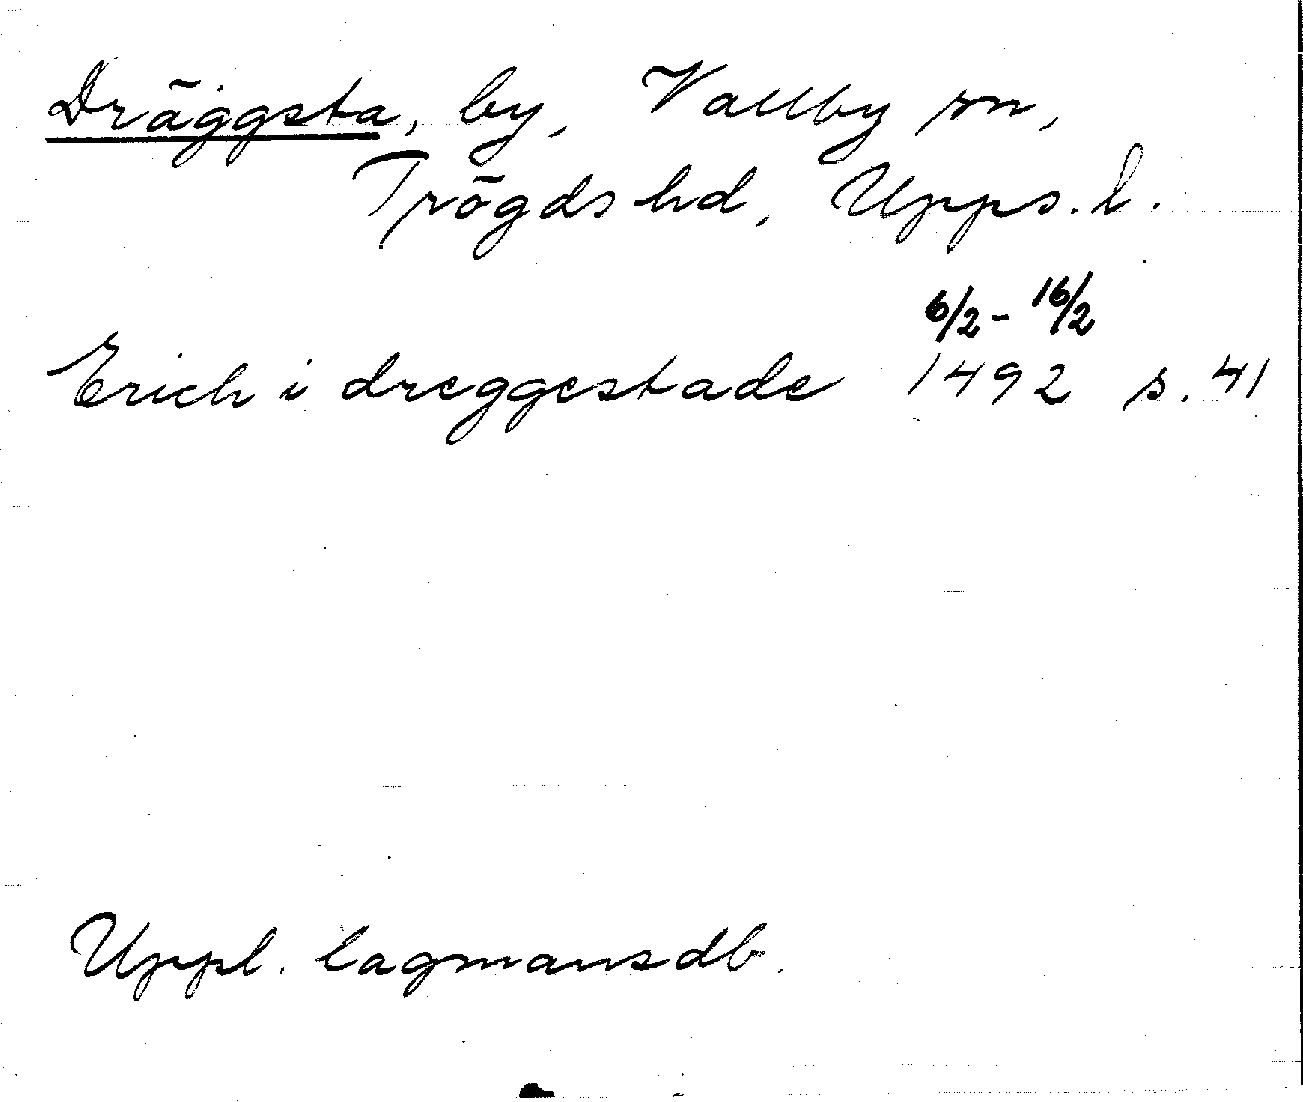 Dräggsta, by, Vallby sn,
Trögds hd, Upps. l.
6/2 - 16/2
Erich i dreggestade 1492 s. 41
Uppl. lagmansdb.